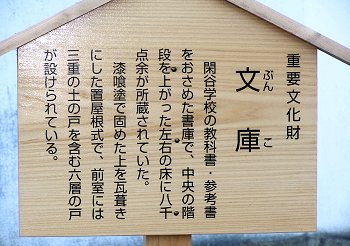 重要文化財
文庫
ぶんこ
閑谷学校の教科書・参考書
をおさめた書庫で、中央の階
段を上がった左右の床に八千
点余が所蔵されていた。
漆喰塗で固めた上を瓦葺き
にした置屋根式で、前室には
三重の土の戸を含む六層の戸
が設けられている。